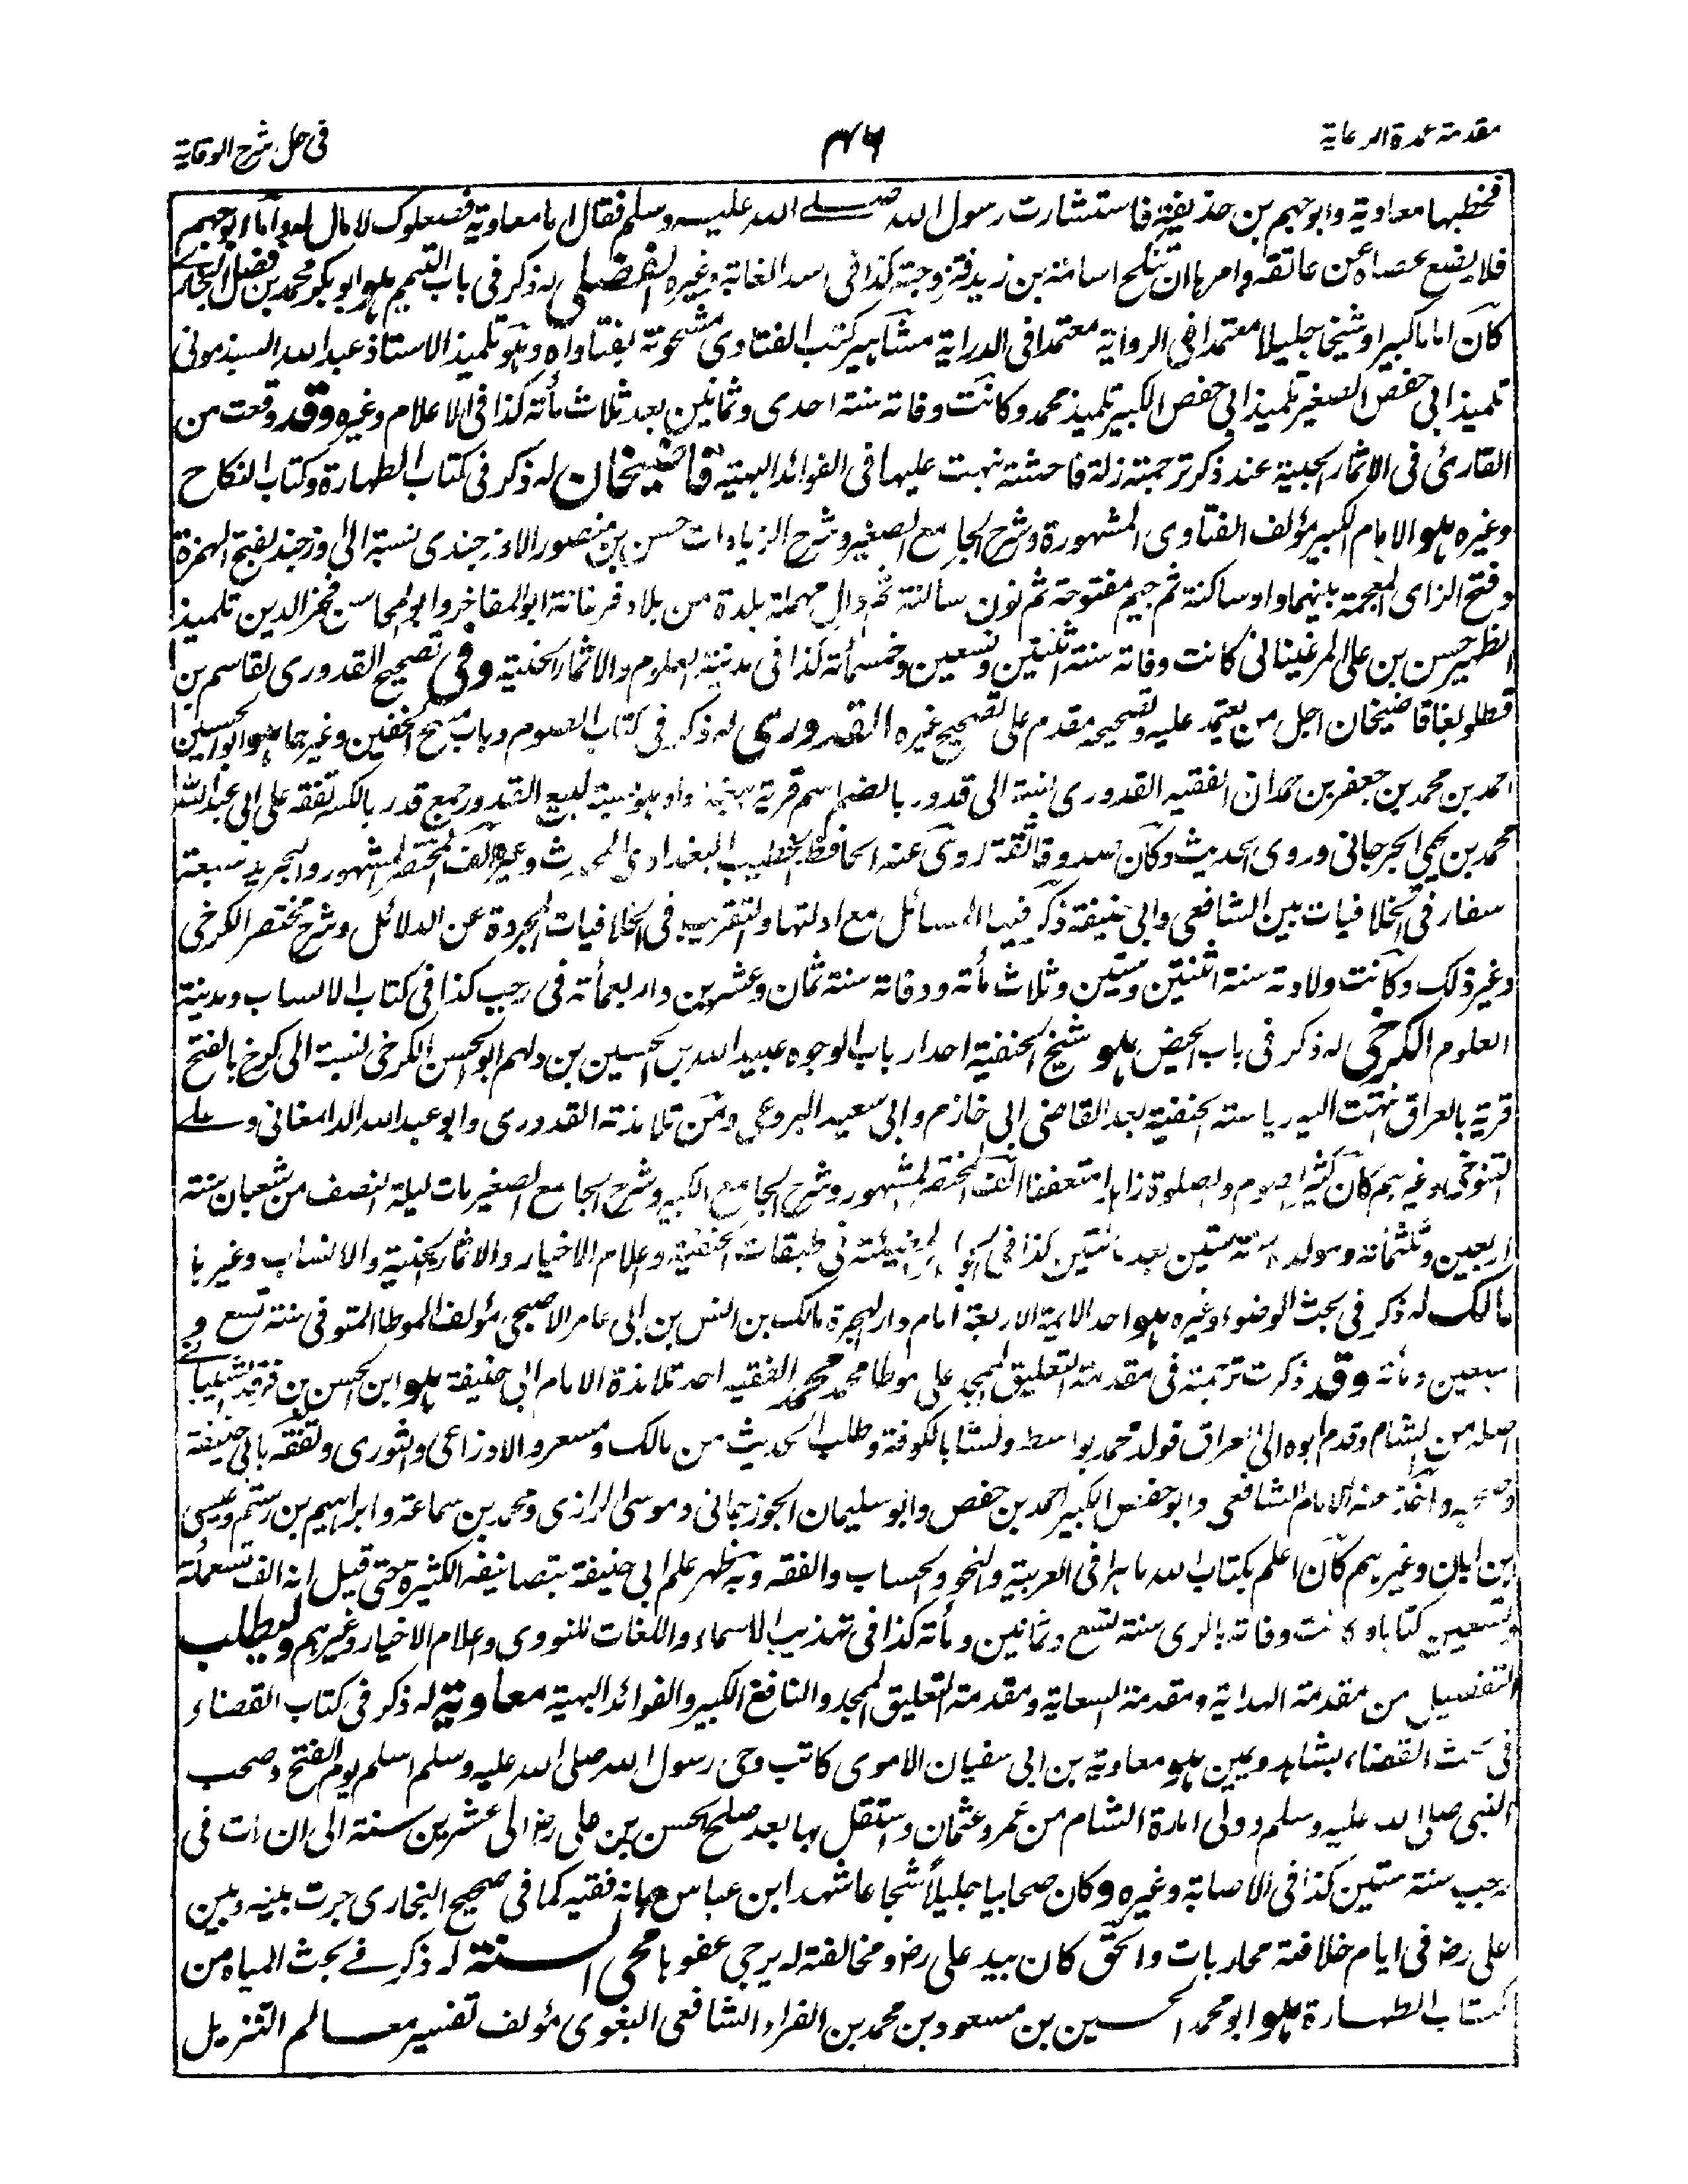 مقدمة عمدة الرعاية
في حل شرح الوقاية
فخطبها معاوية وابو جهم بن حذيفة فاستشارت رسول الله صلى الله عليه وسلم فقال اما معاوية فصعلوك لا مال له واما ابو جهم
فلا يضع عصاه عن عاتقه وامرها ان تنكح اسامة بن زيد فتزوجته كذا في اسد الغابة وغيره الفضلي له ذكر في باب التيمم هو ابو بكر محمد بن فضل البخاري
كان اماما كبيرا وشيخا جليلا معتمدا في الرواية معتمدا في الدراية مشاهير كتب الفتاوى مشحونة بفتاواه وهو تلميذ الاستاذ عبد الله السبذموني
تلميذ ابي حفص الصغير تلميذ ابي حفص الكبير تلميذ محمد وكانت وفاته سنة احدى وثمانين بعد ثلاث مأته كذا في الاعلام وغيره وقد وقعت من
القارئ في الاثمار الجنية عند ذكر ترجمته زلة فاحشة نبهت عليها في الفوائد البهية قاضيخان له ذكر في كتاب الطهارة وكتاب النكاح
وغيره هو الامام الكبير مؤلف الفتاوى المشهورة وشرح الجامع الصغير وشرح الزيادات حسن بن منصور الاوزجندي نسبة الى اوزجند بفتح الهمزة
وفتح الزاي المعجمة بينهما واو ساكنة ثم جيم مفتوحة ثم نون ساكنة ثم دال مهملة بلدة من بلاد فرغانة ابو المفاخر وابو المحاسن فخر الدين تلميذ
الظهير حسن بن علي المرغيناني كانت وفاته سنة اثنتين وتسعين وخمسمأته كذا في مدينة العلوم والاثمار الجنية وفي تصحيح القدوري لقاسم بن
قطلوبغا قاضيخان اجل من يعتمد عليه وتصحيحه مقدم على تصحيح غيره القدوري له ذكر في كتاب الصوم وباب مسح الخفين وغيرهما هو ابو الحسين
احمد بن محمد بن جعفر بن حمدان الفقيه القدوري نسبة الى قدور بالضم اسم قرية ببغداد او هو نسبة لبيع القدور جمع قدر بالكسر تفقه على ابي عبد الله
محمد بن يحيى الجرجاني وروى الحديث وكان صدوقا ثقة روى عنه الحافظ الخطيب البغدادي المحدث وغيره الف المختصر المشهور والتجريد سبعة
سفار في الخلافيات بين الشافعي وابي حنيفة ذكر فيها المسائل مع ادلتها والتقريب في الخلافيات المجردة عن الدلائل وشرح مختصر الكرخي
وغير ذلك وكانت ولادته سنة اثنتين وستين وثلاث مأته ووفاته سنة ثمان وعشرين واربعمأته في رجب كذا في كتاب الانساب ومدينة
العلوم الكرخي له ذكر في باب الحيض هو شيخ الحنفية احد ارباب الوجوه عبيد الله بن الحسين بن دلهم ابو الحسن الكرخي نسبة الى كرخ بالفتح
قرية بالعراق انتهت اليه رياسة الحنفية بعد القاضي ابي خازم وابي سعيد البروعي ومن تلامذته القدوري وابو عبد الله الدامغاني وعلي
التنوخي وغيرهم كان كثير الصوم والصلوة زاهدا متعففا الف المختصر المشهور وشرح الجامع الكبير وشرح الجامع الصغير مات ليلة النصف من شعبان سنة
اربعين وثلثمائة ومولده سنة ستين بعد مائتين كذا في الجواهر المضيئة في طبقات الحنفية واعلام الاخيار والاثمار الجنية والانساب وغيرها
مالك له ذكر في بحث الوضوء وغيره هو احد الائمة الاربعة امام دار الهجرة مالك بن انس بن ابي عامر الاصبحي مؤلف الموطا المتوفى سنة تسع و
سبعين ومأته وقد ذكرت ترجمته في مقدمة التعليق الممجد على موطا محمد محمد الفقيه احد تلامذة الامام ابي حنيفة هو ابن الحسن بن فرقد الشيباني
اصله من الشام وقدم ابوه الى العراق فولد محمد بواسط ونشا بالكوفة وطلب الحديث من مالك ومسعر والاوزاعي والثوري وتفقه بابي حنيفة
وصحبه واخذ عنه الامام الشافعي وابو حفص الكبير احمد بن حفص وابو سليمان الجوزجاني وموسى الرازي ومحمد بن سماعة وابراهيم بن رستم وعيسى
ابن ابان وغيرهم كان اعلم بكتاب الله ماهرا في العربية والنحو والحساب والفقه وبه ظهر علم ابي حنيفة بتصانيفه الكثيرة حتى قيل انه الف تسعمأته
وتسعين كتابا وكانت وفاته بالري سنة تسع وثمانين ومأته كذا في تهذيب الاسماء واللغات للنووي واعلام الاخيار وغيرهم وليطلب
التفصيل من مقدمة الهداية ومقدمة السعاية ومقدمة التعليق الممجد والنافع الكبير والفوائد البهية معاوية له ذكر في كتاب القضاء
في بحث القضاء بشاهد ويمين هو معاوية بن ابي سفيان الاموي كاتب وحي رسول الله صلى الله عليه وسلم اسلم يوم الفتح وصحب
النبي صلى الله عليه وسلم وولى امارة الشام من عمر وعثمان واستقل بها بعد صلح الحسن بن علي رض الى عشرين سنة الى ان مات في
رجب سنة ستين كذا في الاصابة وغيره وكان صحابيا جليلا شجاعا شهد ابن عباس بانه فقيه كما في صحيح البخاري جرت بينه وبين
علي رض في ايام خلافته محاربات والحق كان بيد علي رض ومخالفته له يرجى عفوها محي السنة له ذكر في بحث المياه من
كتاب الطهارة هو ابو محمد الحسين بن مسعود بن محمد بن الفراء الشافعي البغوي مؤلف تفسير معالم التنزيل